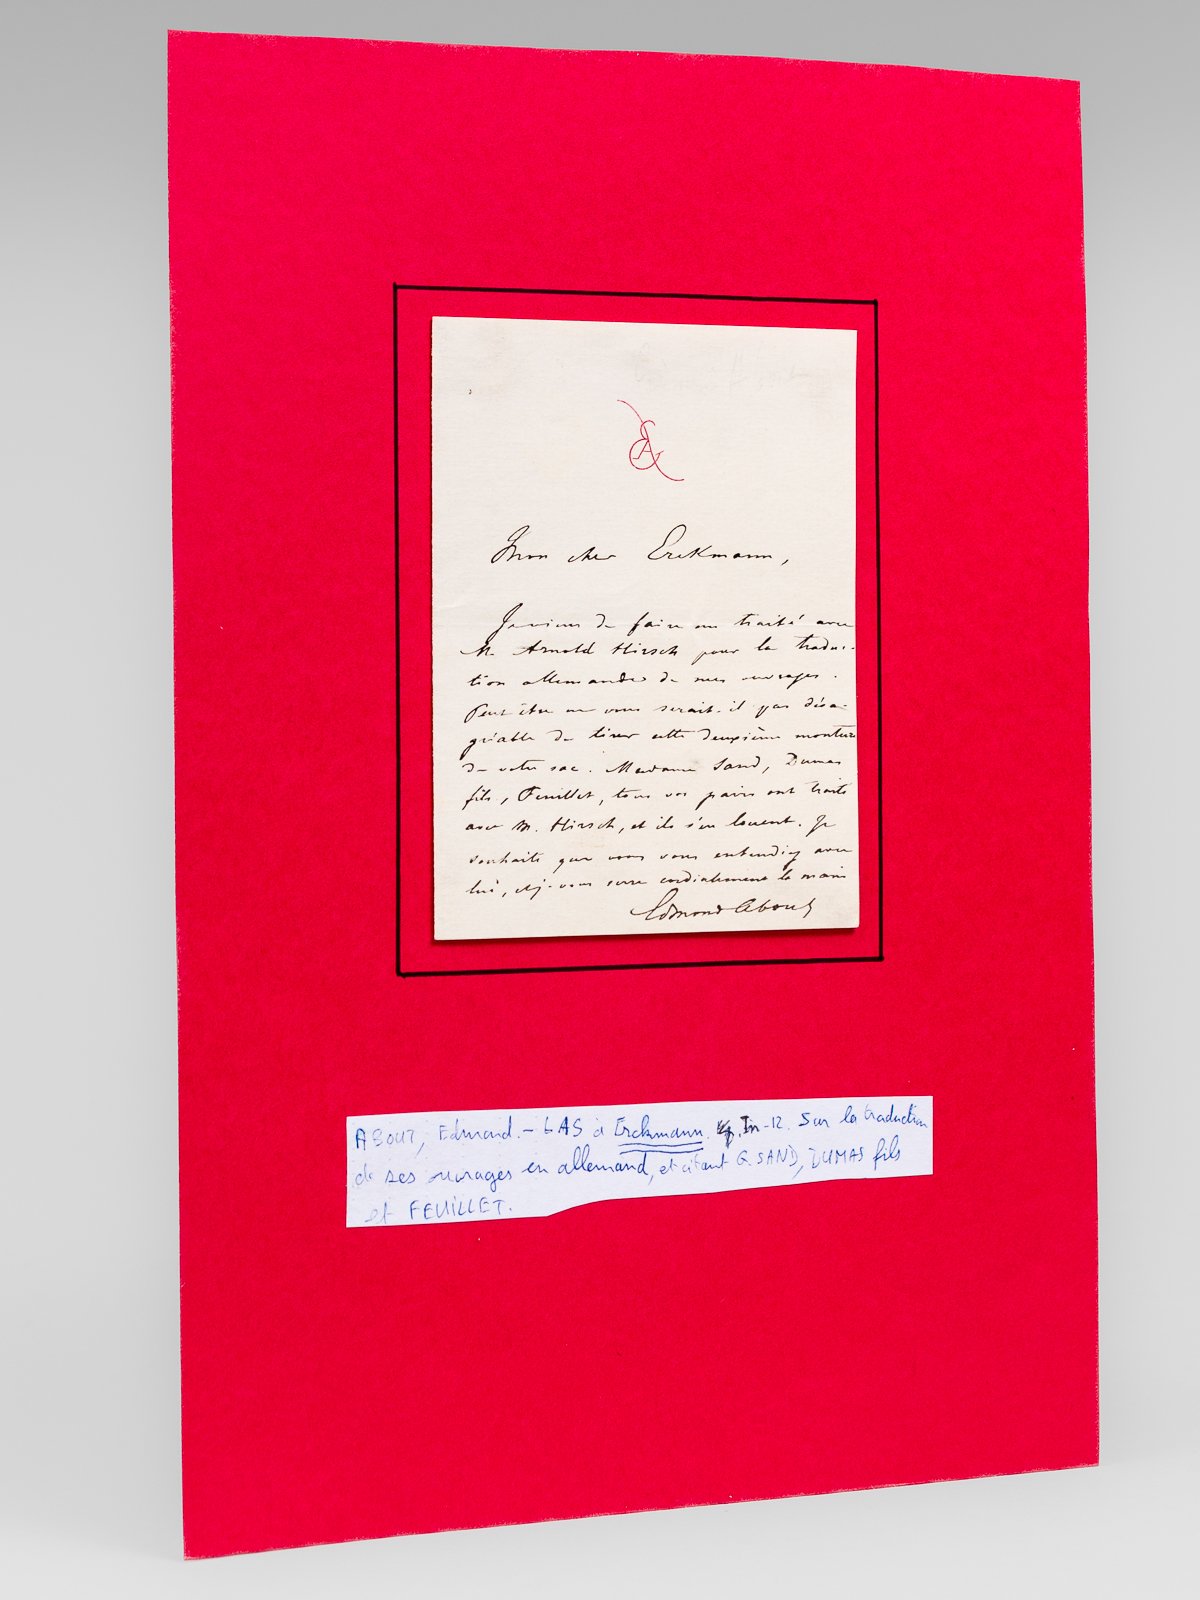 EA
Mon cher Erckmann,
Je viens de faire un traité avec
M. Arnold Hirsch pour la traduc-
tion allemande de mes ouvrages.
Peut être ne vous serait-il pas désa-
gréable de tirer cette deuxième mouture
de votre sac. Madame Sand, Dumas
fils, Feuillet, tous vos pairs ont traité
avec M. Hirsch, et ils s'en louent. Je
souhaite que vous vous entendiez avec
lui, et je vous serre cordialement la main
Edmond About
ABOUT, Edmond. - LAS à Erckmann. In-12. Sur la traduction
de ses ouvrages en allemand, et citant G. SAND, DUMAS fils
et FEUILLET.